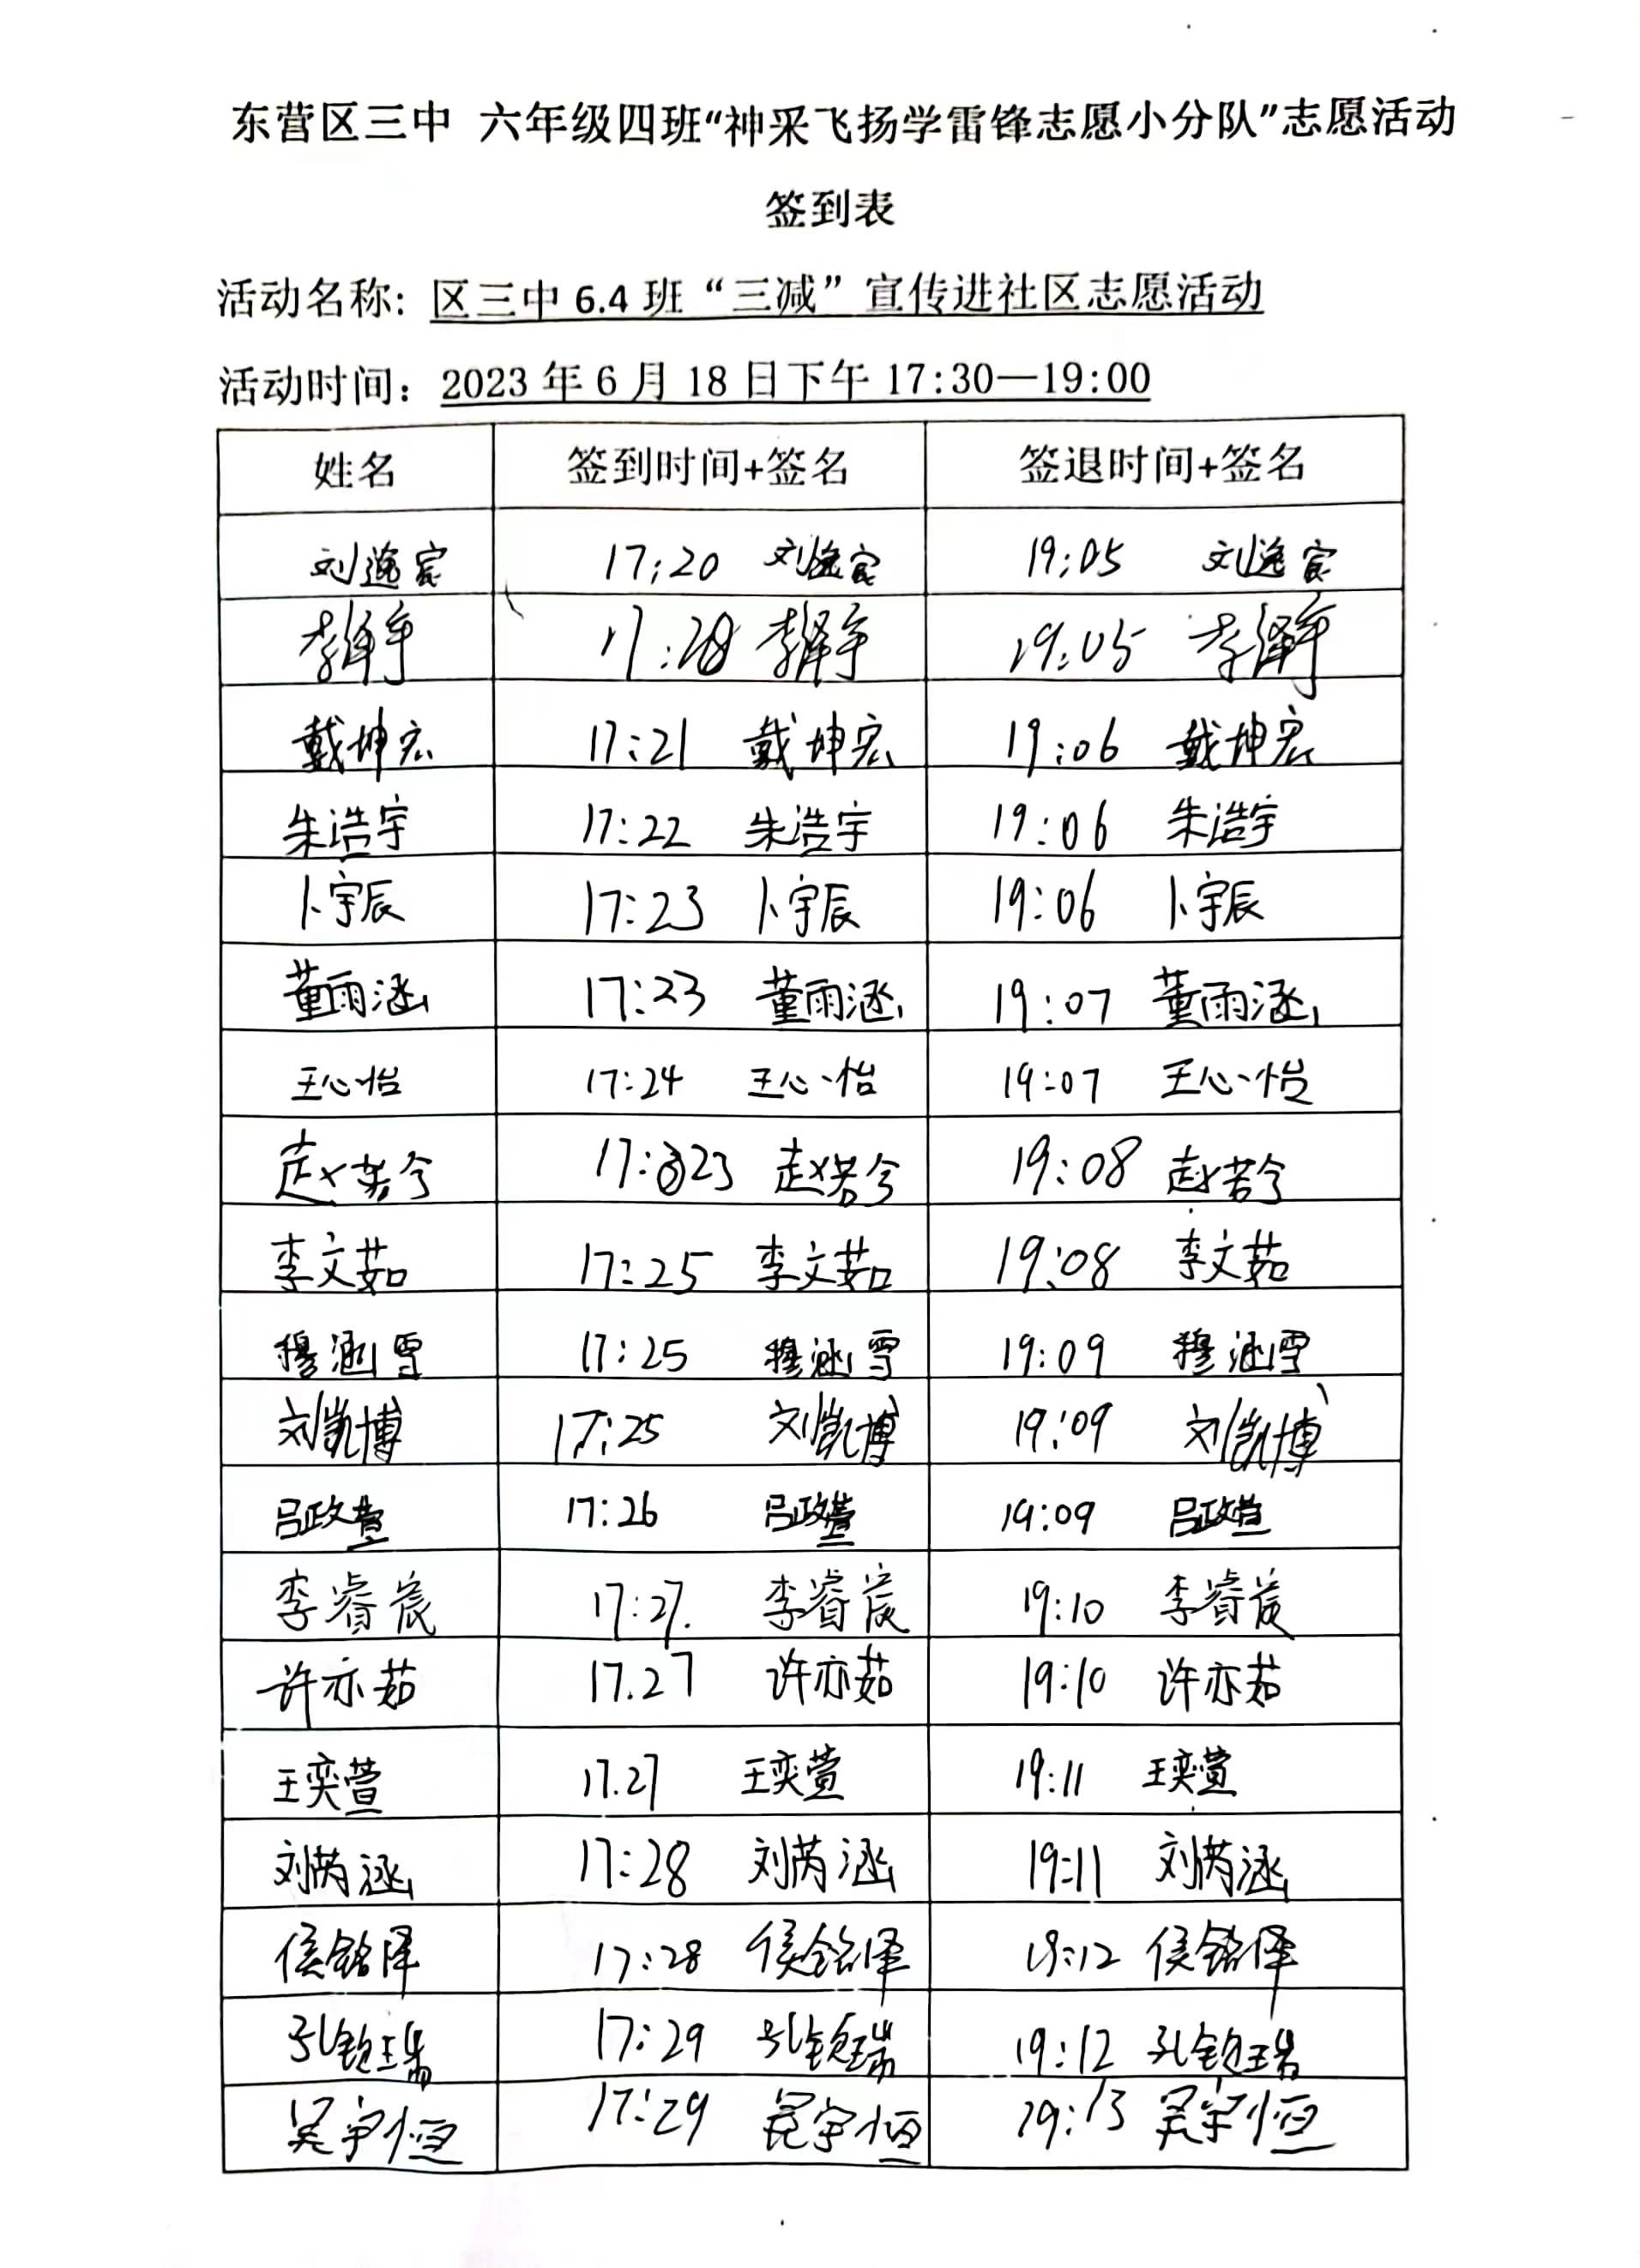 东营区三中 六年级四班“神采飞扬学雷锋志愿小分队”志愿活动
签到表
活动名称: 区三中 6.4 班“三减”宣传进社区志愿活动
活动时间: 2023 年 6 月 18 日下午 17:30—19:00
姓名 签到时间+签名 签退时间+签名
刘逸宸 17:20 刘逸宸 19:05 刘逸宸
李泽宇 17:20 李泽宇 19:05 李泽宇
戴坤宏 17:21 戴坤宏 19:06 戴坤宏
朱浩宇 17:22 朱浩宇 19:06 朱浩宇
卜宇辰 17:23 卜宇辰 19:06 卜宇辰
董雨涵 17:23 董雨涵 19:07 董雨涵
王心怡 17:24 王心怡 19:07 王心怡
赵若今 17:23 赵若今 19:08 赵若今
李文茹 17:25 李文茹 19:08 李文茹
穆涵雪 17:25 穆涵雪 19:09 穆涵雪
刘凯博 17:25 刘凯博 19:09 刘凯博
吕政萱 17:26 吕政萱 19:09 吕政萱
李睿宸 17:27. 李睿宸 19:10 李睿宸
许亦茹 17.27 许亦茹 19:10 许亦茹
王奕萱 17.27 王奕萱 19:11 王奕萱
刘芮涵 17:28 刘芮涵 19:11 刘芮涵
侯铭泽 17:28 侯铭泽 19:12 侯铭泽
孔 17:29 孔 19:12 孔
吴宇恒 17:29 吴宇恒 19:13 吴宇恒